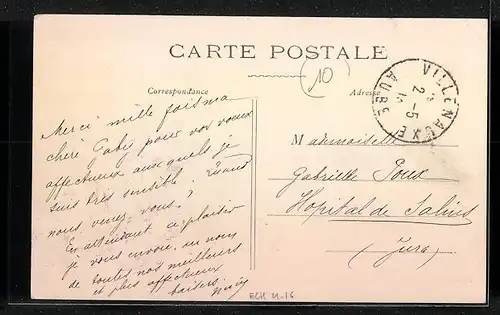 CARTE POSTALE
10
Correspondance
Adresse
VILLENAUXE
AUBE
2 - 5
Merci mille fois ma
chère Gaby pour vos voeux
affectueux auxquels je
suis très sensible. Quand
nous venez-vous?
En attendant ce plaisir
je vous envoie, en nous
de toutes nos meilleurs
et plus affectueux
baisers
Mademoiselle
Gabrielle Poux
Hôpital de Salins
(Jura)